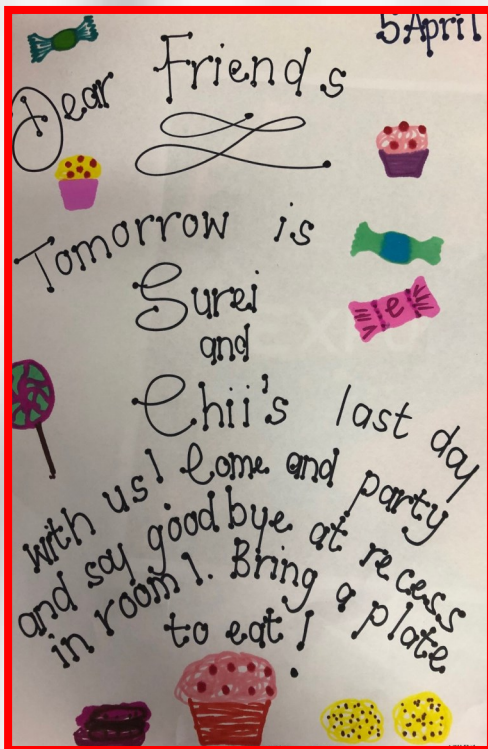 5 April
Dear Friends
Tomorrow is
Surei
and
Chii's last day
with us! Come and party
and say goodbye at recess
in room 1. Bring a plate
to eat!
e